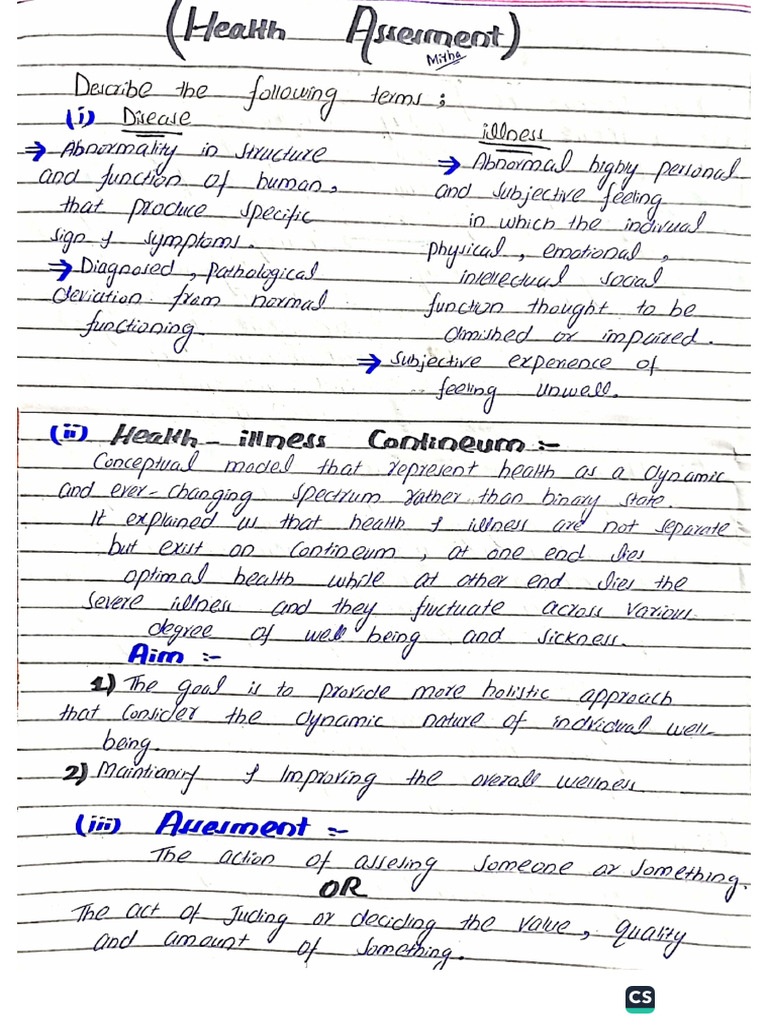 (Health Assesment)
Misba
Describe the following terms ;
(i) Disease
→ Abnormality in structure
and function of human,
that produce specific
sign & symptoms.
→ Diagnosed, pathological
deviation from normal
functioning.
illness
→ Abnormal highly personal
and subjective feeling
in which the indivual
physical, emotional,
intellectual social
function thought to be
dimished or impaired.
→ Subjective experience of
feeling unwell.
(ii) Health - illness Contineum :-
Conceptual model that represent health as a dynamic
and ever-changing spectrum rather than binary state.
It explained us that health & illness are not separate
but exist on contineum, at one end lies
optimal health while at other end lies the
severe illness and they fluctuate across various
degree of well being and sickness.
Aim :-
1) The goal is to provide more holistic approach
that consider the dynamic nature of individual well-
being.
2) & Improving the overall wellness
(iii) Assesment :-
The action of assesing someone or something.
OR
The act of Juding or deciding the value, quality
and amount of something.
CS